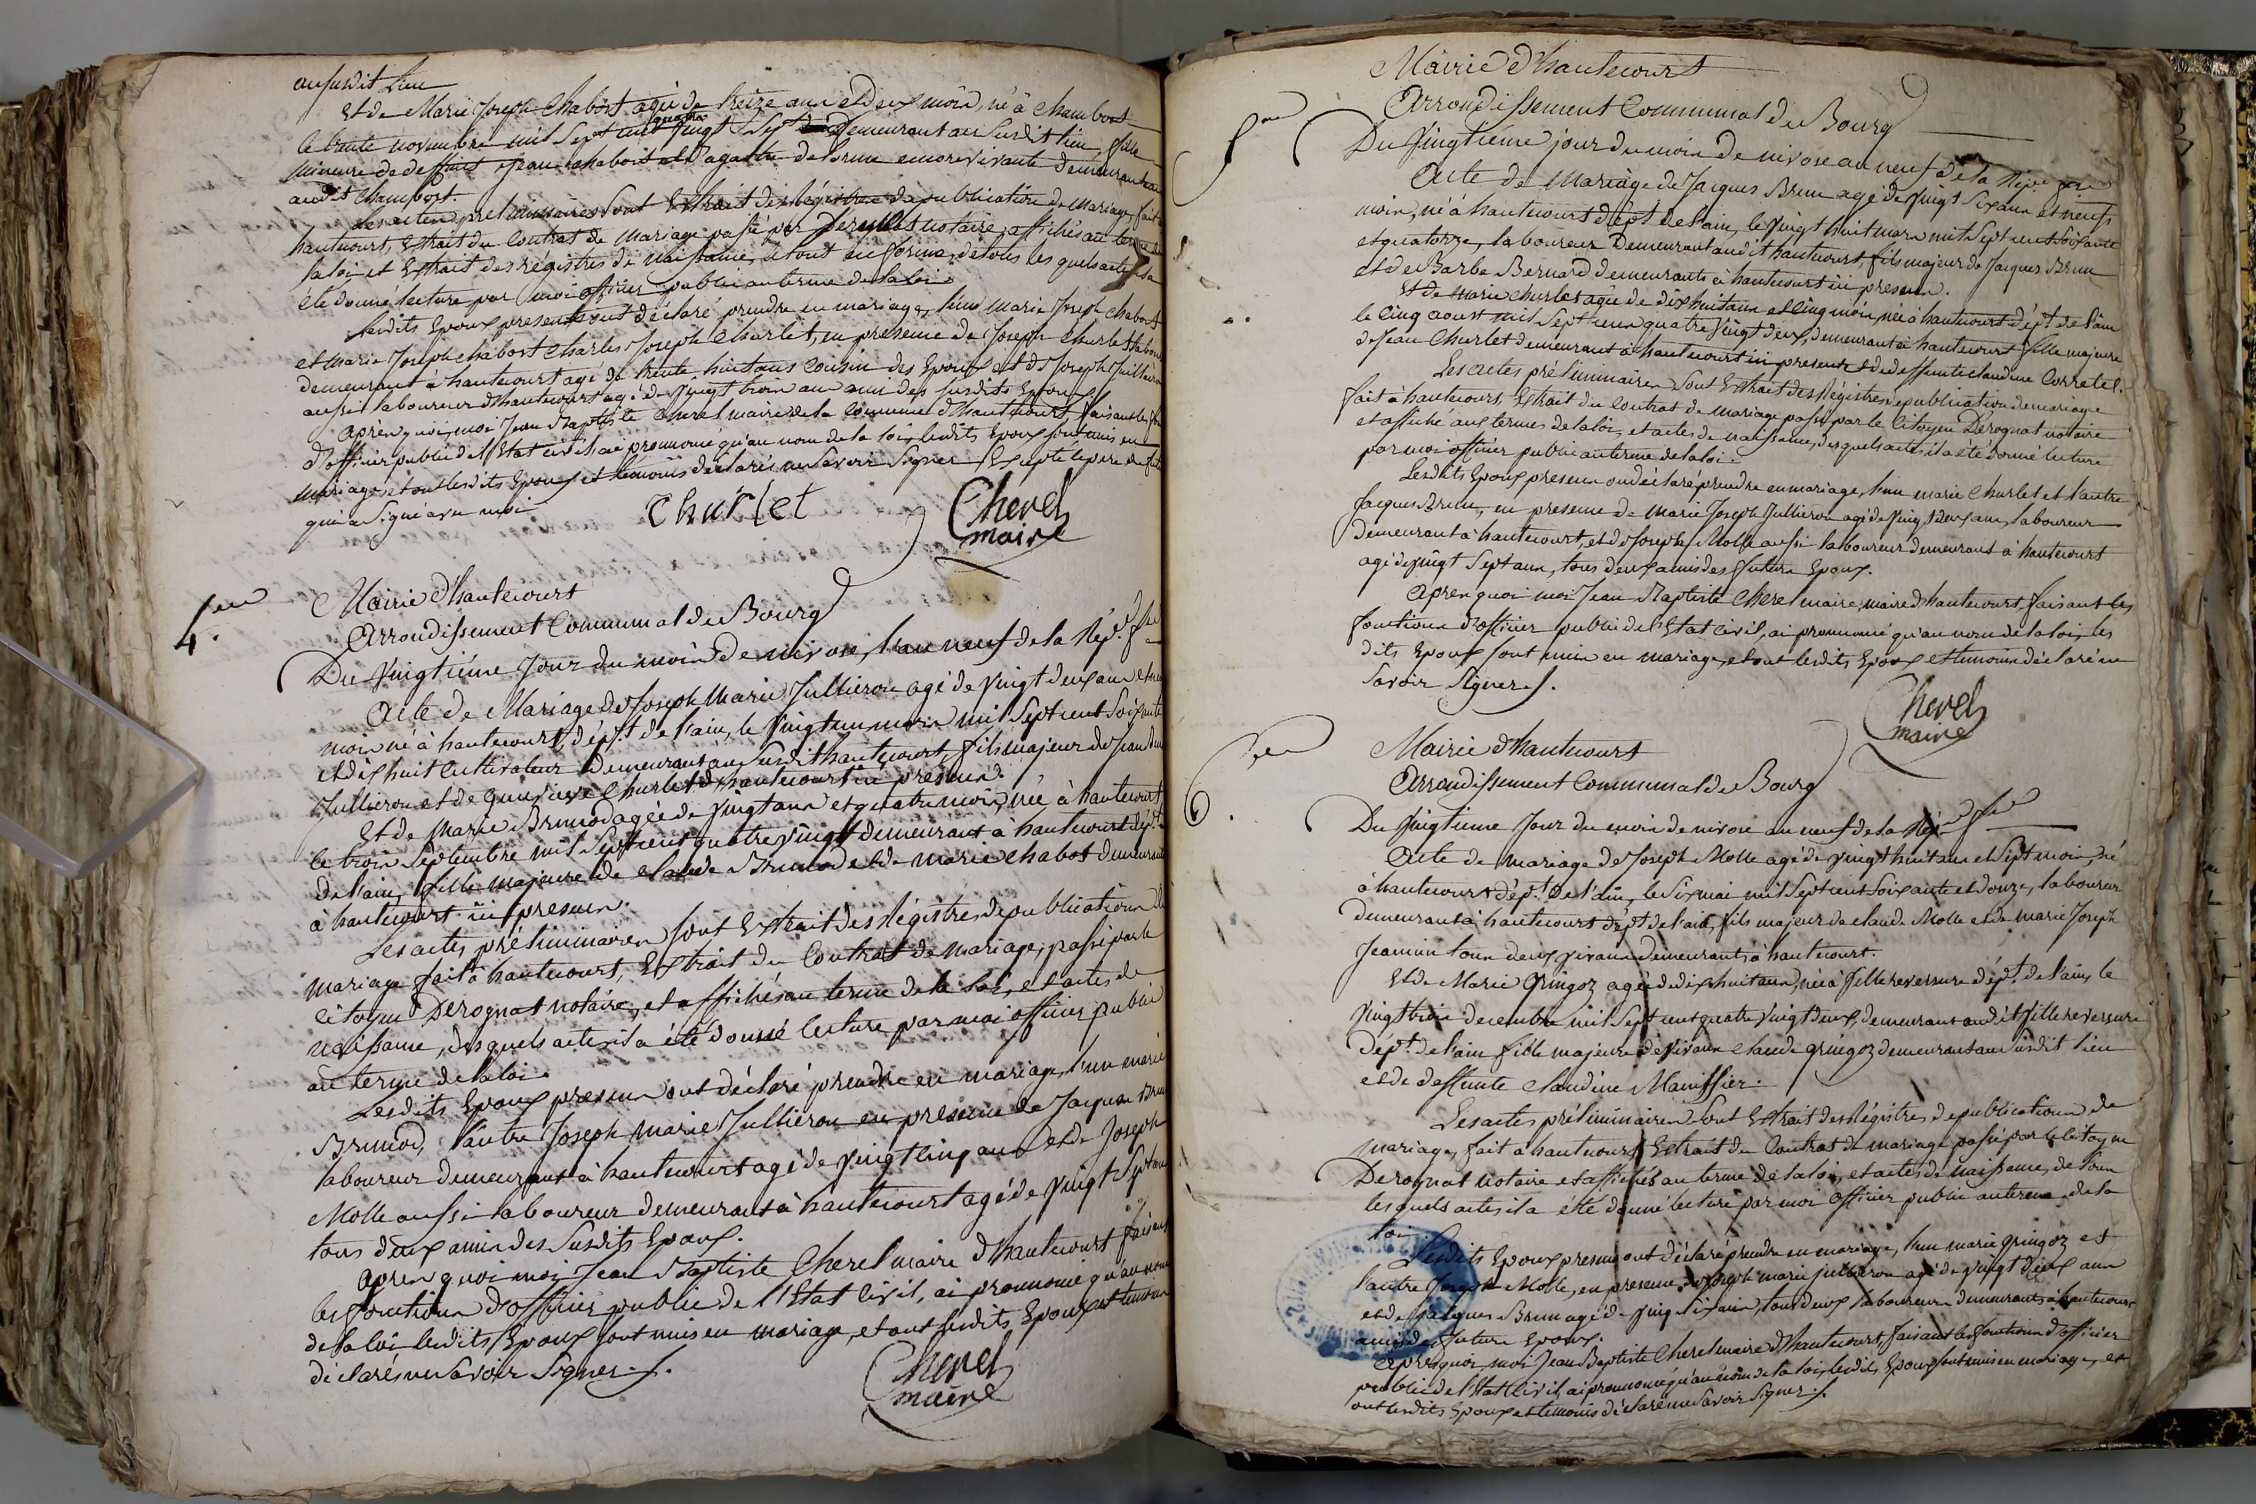 au susdit Lieu
Et de Marie Joseph Chabost agée de treize ans et deux mois, né à Chambost
le trente novembre mil sept cent quatre vingt sept Demeurant au susdit lieu, fille
mineure de deffunt Jean chabost et d'agathe delorme encore vivante demeurante
audit Chambost.
Les actes préliminaires sont Extrait des Régistres de publication de Mariage, fait
hautecourt, Extrait du Contrat de Mariage passé par notaire, affichés au terme de
la loi et Extrait des régistres de naissance, le tout en forme, de tous les quels actes il a
été donné lecture par moi officier public au terme de la loi.
Lesdits Epoux presents ont déclaré prendre en mariage, l'une Marie Joseph Chabost
et Marie Joseph Chabost Charles Joseph Charlet, en presence de Joseph Churlet
demeurant à hautecourt agé de trente huit ans cousin des Epoux et de Joseph Juilliéron
aussi laboureur d'hautecourt agé de vingt trois ans ami des susdits Epoux
Après quoi, moi Jean Baptiste Cherel maire de la commune d'hautecourt, faisant les
d'officier public de l'Etat civil ai prononcé qu'au nom de la loi, lesdits Epoux sont unis en
mariage, et ont lesdits Epoux et témoins déclarés ne savoir signer Excepté le père
qui a Signé avec moi
Churlet
Cherel
maire
4.
Mairie d'hautecourt
Arrondissement Communal de Bourg
Du Vingtiéme Jour du mois de nivose, l'an neuf de la Rép.
Acte de Mariage de Joseph Marie Jullieron agé de vingt deux ans et
mois né à hautecourt, dépt. de l'ain, le vingt un mil sept cent soixante
et dix huit cultivateur demeurant au susdit hautecourt, fils majeur de Jean
Jullieron et de Churlet d'hautecourt ici presents.
Et de Marie Brunod agée de vingt ans et quatre mois, née à hautecourt
le trois Septembre mil sept cent quatre vingt demeurant à hautecourt dépt.
de l'ain, fille majeure de claude Brunod et de marie chabot demeurants
à hautecourt ici presens.
Les actes préliminaires sont Extrait des Régistres de publication de
mariage fait à hautecourt, Extrait du Contrat de Mariage, passé par le
citoyen Derognat notaire, et affichés au terme de la loi, et actes de
naissance, desquels actes il a été donné lecture par moi officier public
au terme de la loi.
Lesdits Epoux presens ont déclaré prendre en mariage, l'une marie
Brunod, l'autre Joseph Marie Jullieron en presence de Jacques Brun
laboureur demeurant à hautecourt agé de vingt cinq ans et de Joseph
Molle aussi laboureur demeurant à hautecourt agé de vingt sept ans
tous deux amis des susdits Epoux.
Après quoi moi Jean Baptiste Cherel maire d'hautecourt faisant
les fonctions d'officier public de l'Etat Civil, ai prononcé qu'au nom
de la loi lesdits Epoux sont unis en mariage, et ont lesdits Epoux et temoins
déclarés ne savoir signer.
Cherel
maire
Mairie d'hautecourt
Arrondissement Communal de Bourg
Du Vingtiéme jour du mois de nivose an neuf de la Répu.
Acte de Mariage de Jacques Brun agé de vingt six ans et neufs
mois, né à hautecourt dépt. de l'ain, le vingt huit mars mil sept cent soixante
et quatorze, laboureur demeurant audit hautecourt, fils majeur de Jacques Brun
et de Barbe Bernard demeurants à hautecourt ici presens.
Et de Marie Churlet agée de dix huit ans et cinq mois, née à hautecourt dépt. de l'ain
le cinq aoust mil sept cent quatre vingt deux, demeurant à hautecourt fille majeure
de Jean Churlet demeurant à hautecourt ici present et de deffunte claudine Corretel.
Les actes préliminaires sont Extrait des Régistres de publication de mariage
fait à hautecourt, Extrait du Contrat de Mariage passé par le Citoyen Derognat notaire
et affiché aux termes de la loi, et actes de naissance, desquels actes il a été donné lecture
par moi officier public au terme de la loi.
Lesdits Epoux presens ont déclaré prendre en mariage, l'une marie Churlet et l'autre
Jacques Brun, en presence de Marie Joseph Jullieron agé de vingt deux ans, laboureur
demeurant à hautecourt, et de Joseph Molle aussi laboureur demeurant à hautecourt
agé de vingt sept ans, tous deux amis des futurs Epoux.
Après quoi moi Jean Baptiste Cherel maire, maire d'hautecourt, faisant les
fonctions d'officier public de l'Etat Civil, ai prononcé qu'au nom de la loi, les
dits Epoux sont unis en mariage, et ont lesdits Epoux et temoins déclaré ne
savoir signer.
Cherel
maire
6.
Mairie d'hautecourt
Arrondissement Communal de Bourg
Du Vingtiéme Jour du mois de nivose an neuf de la Rép.
Acte de mariage de Joseph Molle agé de vingt huit ans et sept mois, né
à hautecourt dépt. de l'ain, le six mai mil sept cent soixante et douze, laboureur
demeurant à hautecourt dépt. de l'ain, fils majeur de claude Molle et de marie Joseph
Jeannin tous deux vivans demeurants à hautecourt.
Et de Marie Gringoz agée de dix huit ans, née à Villereversure dépt. de l'ain, le
vingt trois decembre mil sept cent quatre vingt deux, demeurant audit villereversure
dépt. de l'ain fille majeure de vivant claude gringoz demeurant au susdit lieu
et de deffunte claudine Manissier.
Les actes préliminaires sont Extrait des Régistres de publication de
mariage, fait à hautecourt, Extrait du Contrat de mariage passé par le Citoyen
Derognat notaire et affichés au terme de la loi, et actes de naissance, de tous
lesquels actes il a été donné lecture par moi officier public au terme de la
loi.
Lesdits Epoux presens ont déclaré prendre en mariage, l'une marie gringoz et
l'autre Joseph Molle, en presence de Joseph marie jullieron agé de vingt deux ans
et de Jacques Brun agé de vingt six ans, tous deux laboureurs demeurants à hautecourt
amis des futurs Epoux.
Après quoi, moi Jean Baptiste Cherel maire d'hautecourt, faisant les fonctions d'officier
public de l'Etat Civil, ai prononcé qu'au nom de la loi, lesdits Epoux sont unis en mariage, et
ont lesdits Epoux et temoins déclaré ne savoir signer.